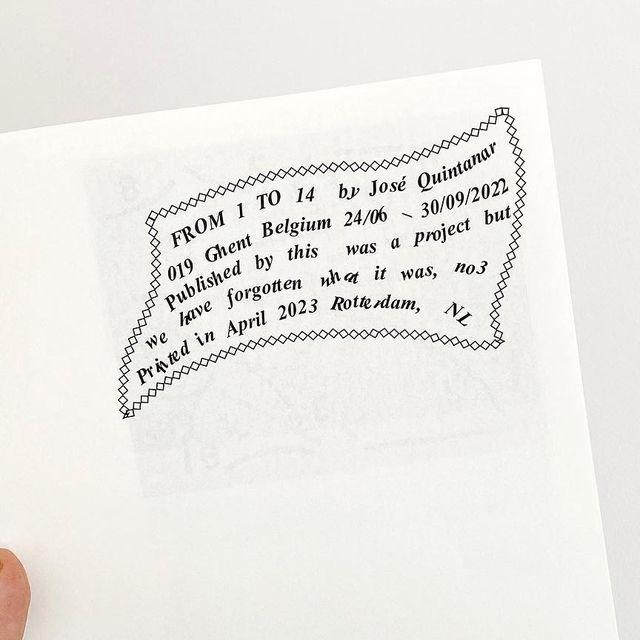 FROM 1 TO 14 by José Quintanar
019 Ghent Belgium 24/06 - 30/09/2022
Published by this was a project but
we have forgotten what it was, no3
Printed in April 2023 Rotterdam, NL